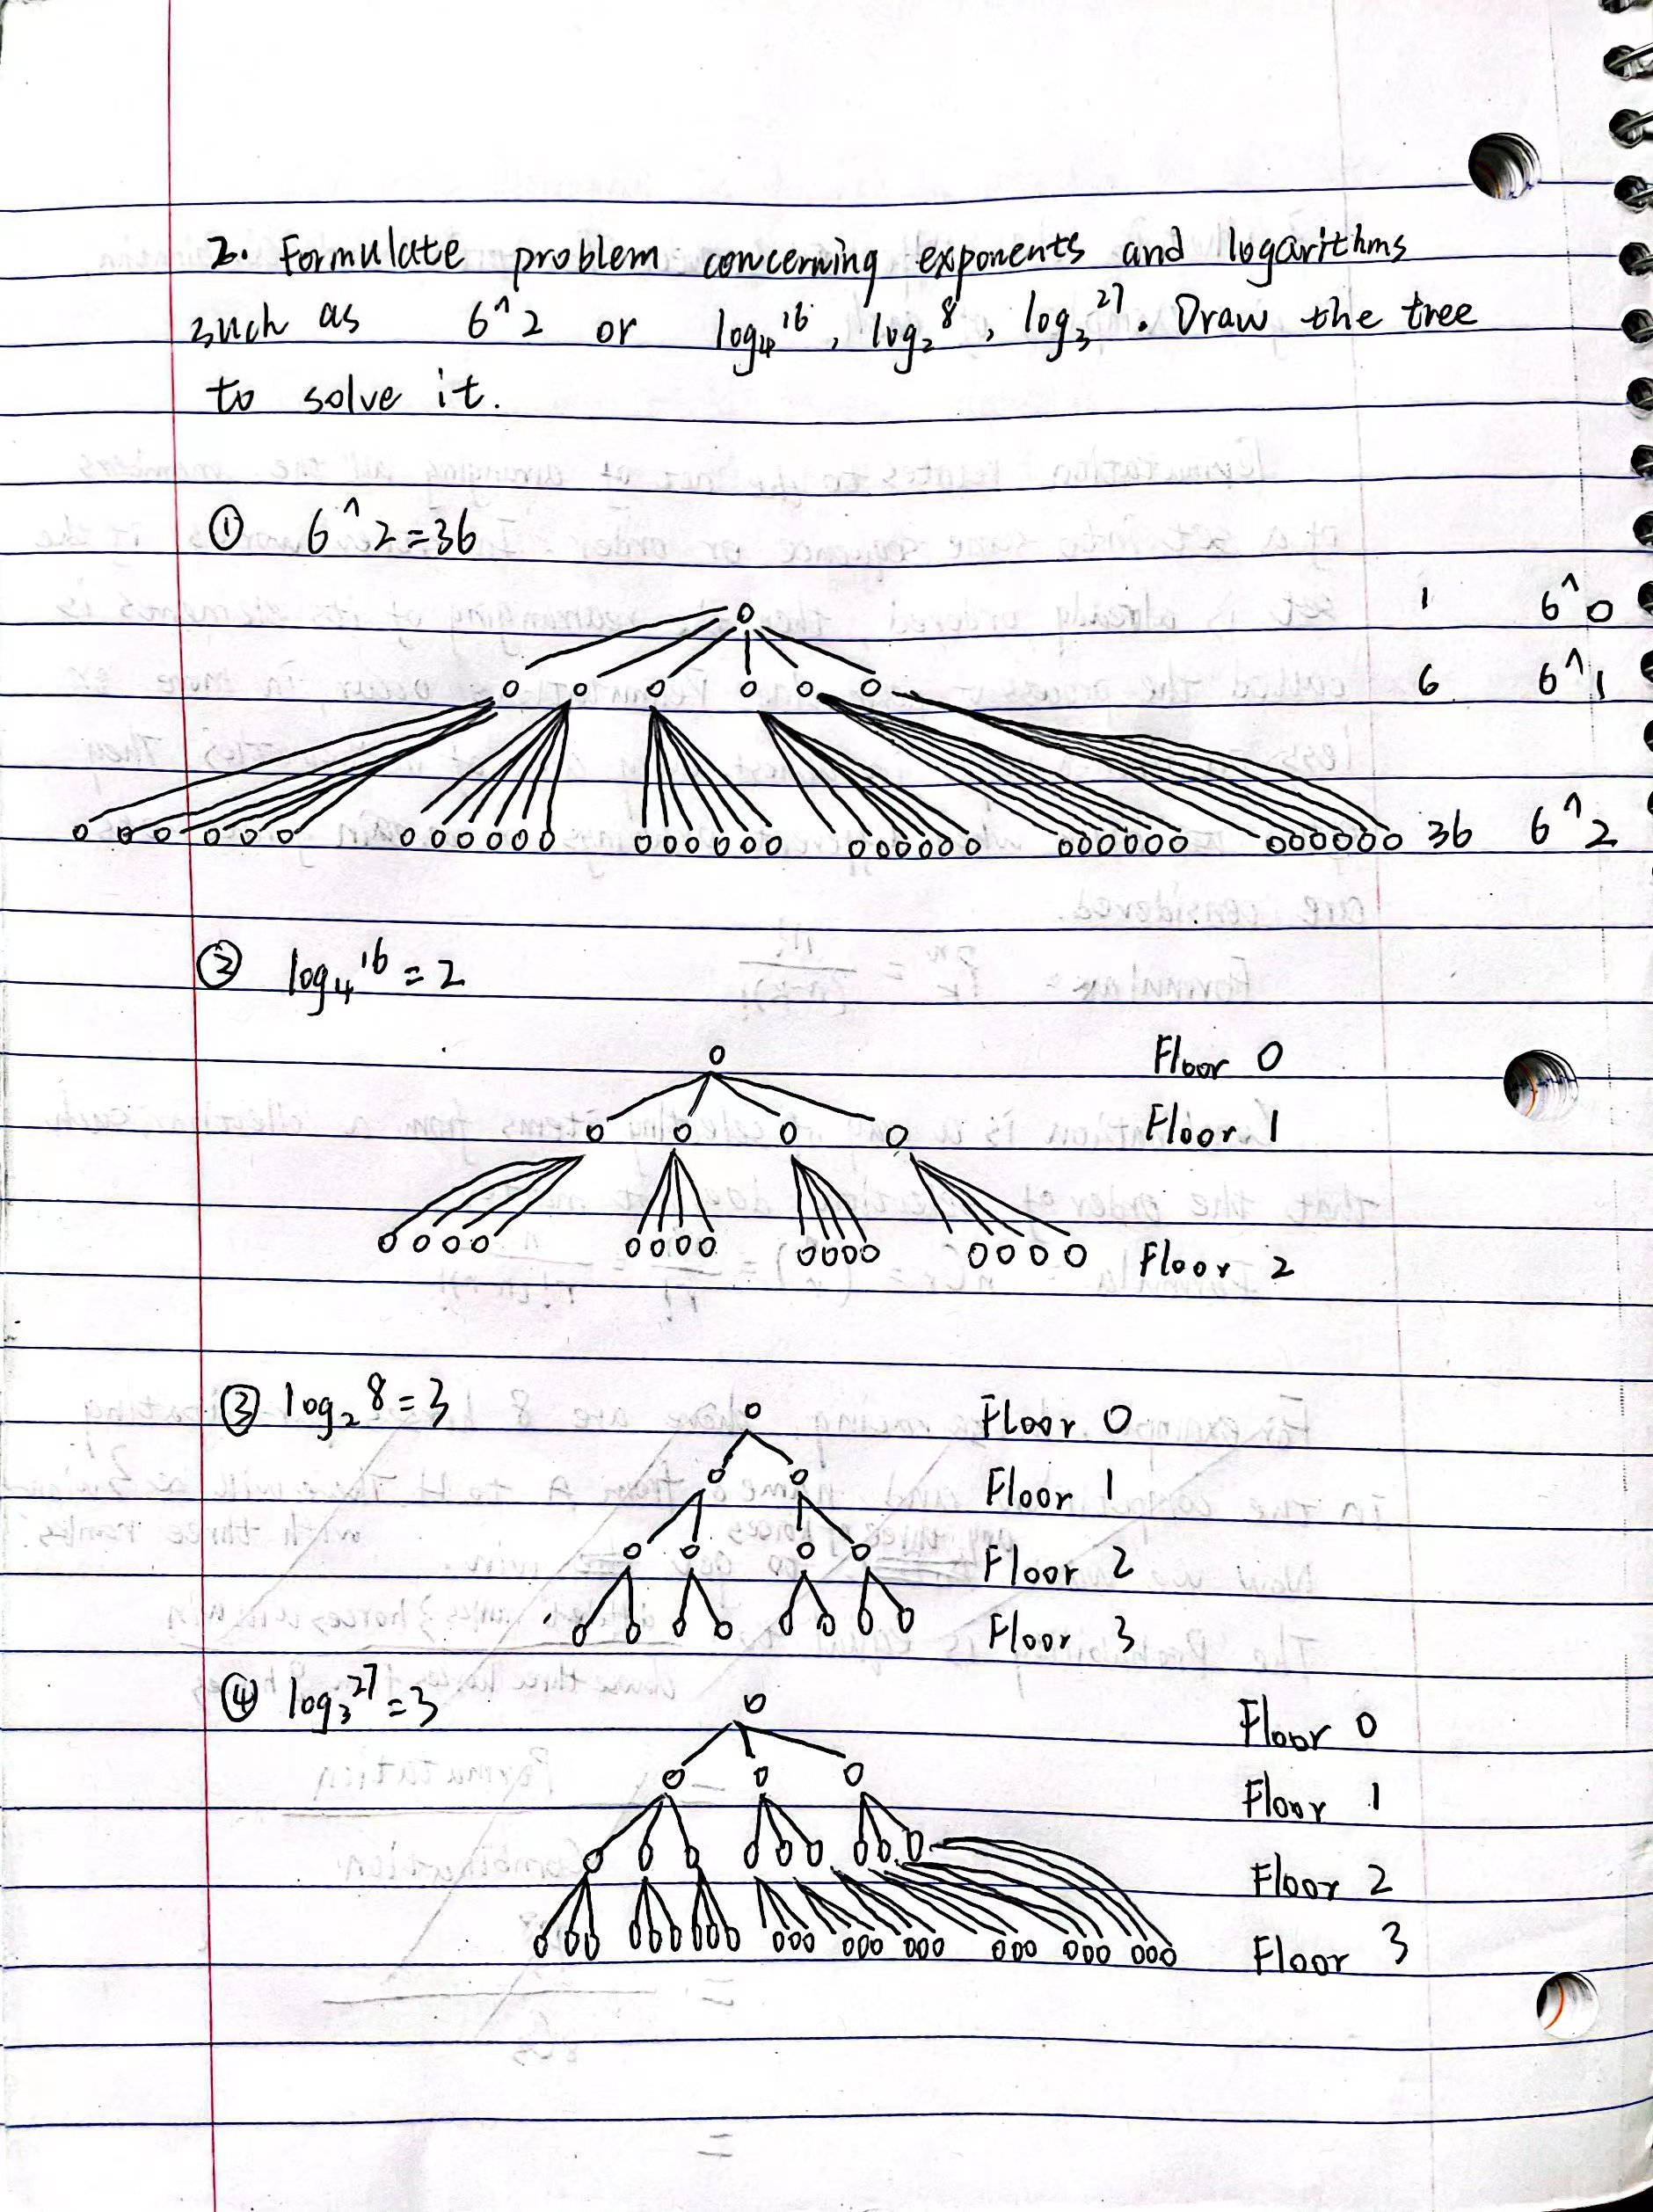 2. Formulate problem concerning exponents and logarithms
such as 6^2 or log₄¹⁶, log₂⁸, log₃²⁷. Draw the tree
to solve it.
① 6^2=36
1 6^0
6 6^1
36 6^2
② log₄¹⁶=2
Floor 0
Floor 1
Floor 2
③ log₂⁸=3
Floor 0
Floor 1
Floor 2
Floor 3
④ log₃²⁷=3
Floor 0
Floor 1
Floor 2
Floor 3